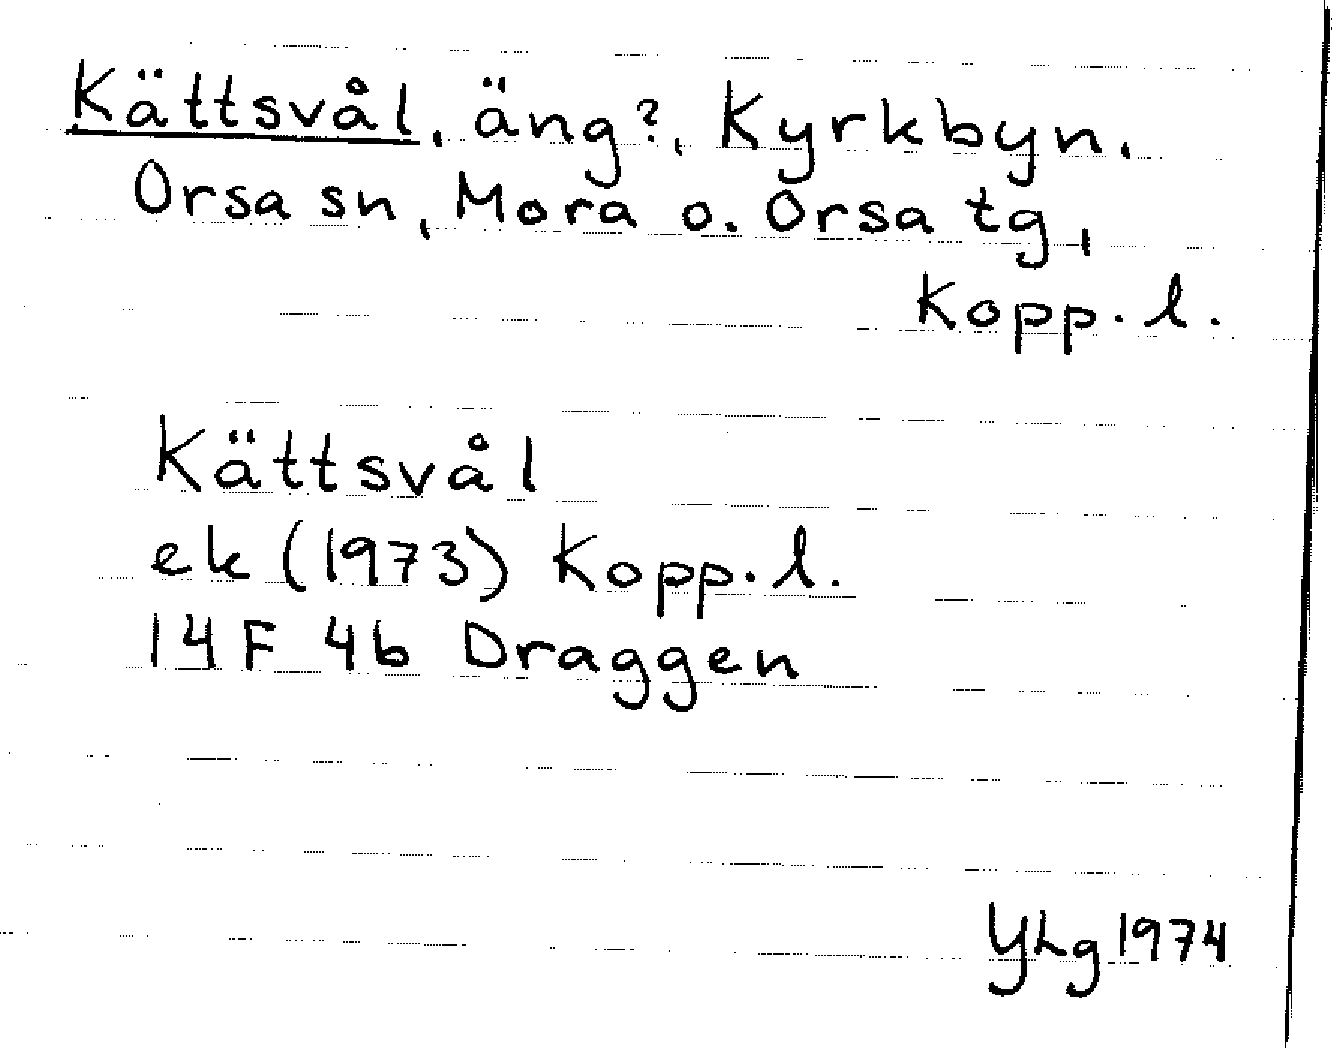 Kättsvål, äng?, Kyrkbyn.
Orsa sn, Mora o. Orsa tg,
Kopp. l.
Kättsvål
ek (1973) Kopp. l.
14F 4b Draggen
YLg 1974